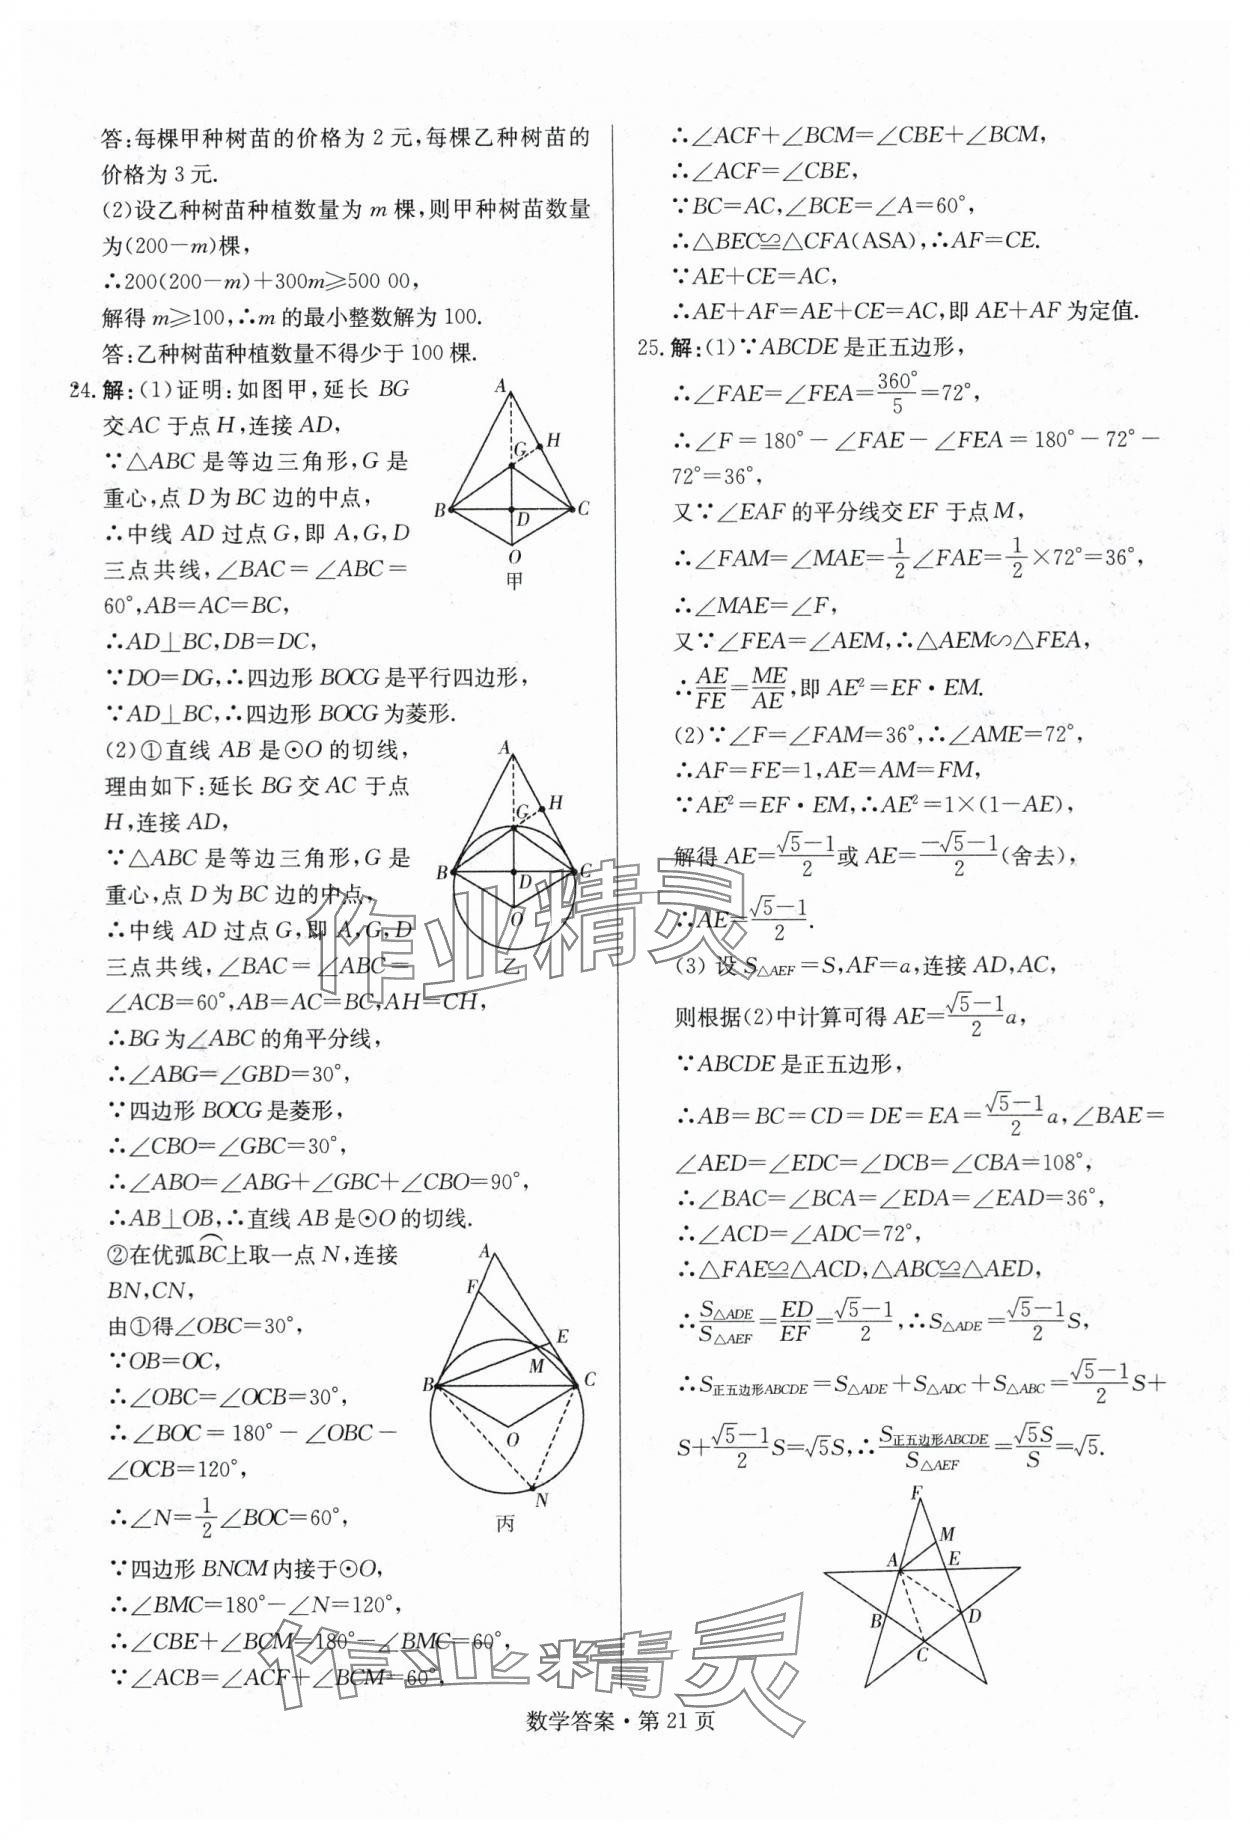 答:每棵甲种树苗的价格为 2 元,每棵乙种树苗的
价格为 3 元.
(2)设乙种树苗种植数量为 m 棵,则甲种树苗数量
为(200-m)棵,
∴200(200-m)+300m≥500 00,
解得 m≥100,∴m 的最小整数解为 100.
答:乙种树苗种植数量不得少于 100 棵.
24. 解:(1)证明:如图甲,延长 BG
交 AC 于点 H,连接 AD,
∵△ABC 是等边三角形,G 是
重心,点 D 为 BC 边的中点,
∴中线 AD 过点 G,即 A,G,D
三点共线,∠BAC=∠ABC=
60°,AB=AC=BC,
∴AD⊥BC,DB=DC,
∵DO=DG,∴四边形 BOCG 是平行四边形,
∵AD⊥BC,∴四边形 BOCG 为菱形.
A
H
G
B
D
C
O
甲
(2)①直线 AB 是⊙O 的切线,
理由如下:延长 BG 交 AC 于点
H,连接 AD,
∵△ABC 是等边三角形,G 是
重心,点 D 为 BC 边的中点,
∴中线 AD 过点 G,即 A,G,D
三点共线,∠BAC=∠ABC=
∠ACB=60°,AB=AC=BC,AH=CH,
∴BG 为∠ABC 的角平分线,
∴∠ABG=∠GBD=30°,
∵四边形 BOCG 是菱形,
∴∠CBO=∠GBC=30°,
∴∠ABO=∠ABG+∠GBC+∠CBO=90°,
∴AB⊥OB,∴直线 AB 是⊙O 的切线.
A
H
G
B
D
C
O
乙
②在优弧BC上取一点 N,连接
BN,CN,
由①得∠OBC=30°,
∵OB=OC,
∴∠OBC=∠OCB=30°,
∴∠BOC=180°-∠OBC-
∠OCB=120°,
∴∠N=1/2∠BOC=60°,
∵四边形 BNCM 内接于⊙O,
∴∠BMC=180°-∠N=120°,
∴∠CBE+∠BCM=180°-∠BMC=60°,
∵∠ACB=∠ACF+∠BCM=60°,
A
F
E
M
B
C
O
N
丙
∴∠ACF+∠BCM=∠CBE+∠BCM,
∴∠ACF=∠CBE,
∵BC=AC,∠BCE=∠A=60°,
∴△BEC≌△CFA(ASA),∴AF=CE.
∵AE+CE=AC,
∴AE+AF=AE+CE=AC,即 AE+AF 为定值.
25. 解:(1)∵ABCDE 是正五边形,
∴∠FAE=∠FEA=360°/5=72°,
∴∠F=180°-∠FAE-∠FEA=180°-72°-
72°=36°,
又∵∠EAF 的平分线交 EF 于点 M,
∴∠FAM=∠MAE=1/2∠FAE=1/2×72°=36°,
∴∠MAE=∠F,
又∵∠FEA=∠AEM,∴△AEM∽△FEA,
∴AE/FE=ME/AE,即 AE²=EF·EM.
(2)∵∠F=∠FAM=36°,∴∠AME=72°,
∴AF=FE=1,AE=AM=FM,
∵AE²=EF·EM,∴AE²=1×(1-AE),
解得 AE=(√5-1)/2或 AE=(-√5-1)/2(舍去),
∴AE=(√5-1)/2.
(3) 设 S△AEF=S,AF=a,连接 AD,AC,
则根据(2)中计算可得 AE=(√5-1)/2 a,
∵ABCDE 是正五边形,
∴AB=BC=CD=DE=EA=(√5-1)/2 a,∠BAE=
∠AED=∠EDC=∠DCB=∠CBA=108°,
∴∠BAC=∠BCA=∠EDA=∠EAD=36°,
∴∠ACD=∠ADC=72°,
∴△FAE≌△ACD,△ABC≌△AED,
∴S△ADE/S△AEF=ED/EF=(√5-1)/2,∴S△ADE=(√5-1)/2 S,
∴S正五边形ABCDE=S△ADE+S△ADC+S△ABC=(√5-1)/2 S+
S+(√5-1)/2 S=√5S,∴S正五边形ABCDE/S△AEF=√5S/S=√5.
F
M
A
E
B
D
C
数学答案·第 21 页
作业精灵
作业精灵